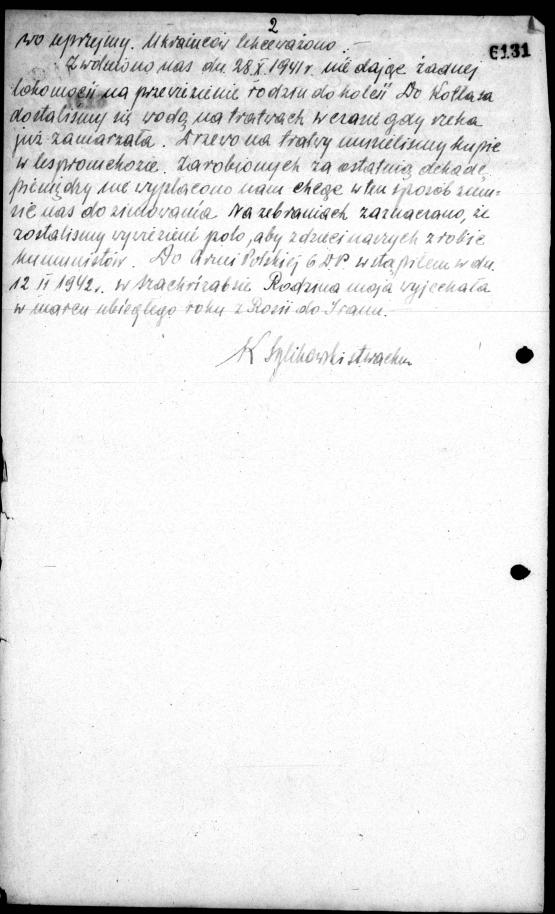 2
6131
wo uprzejmy. Ukraińców lekceważono.–
Zwolniono nas dn. 28 X 1941 r. nie dając żadnej
lokomocji na przewiezienie rodzin do kolei. Do Kotłasa
dostaliśmy się wodą na tratwach w czasie gdy rzeka
już zamarzała. Drzewo na tratwy musieliśmy kupić
w lespromchozie. Zarobionych za ostatnią dekadę
pieniędzy nie wypłacono nam chcąc w ten sposób zmu-
sić nas do zimowania. Na zebraniach zaznaczano, że
zostaliśmy wywiezieni poto, aby z dzieci naszych zrobić
komunistów. Do Armi Polskiej 6 D.P. wstąpiłem w dn.
12 II 1942 r. w Szachrizabsie Rodzina moja wyjechała
w marcu ubiegłego roku z Rosii do Iranu.–
K